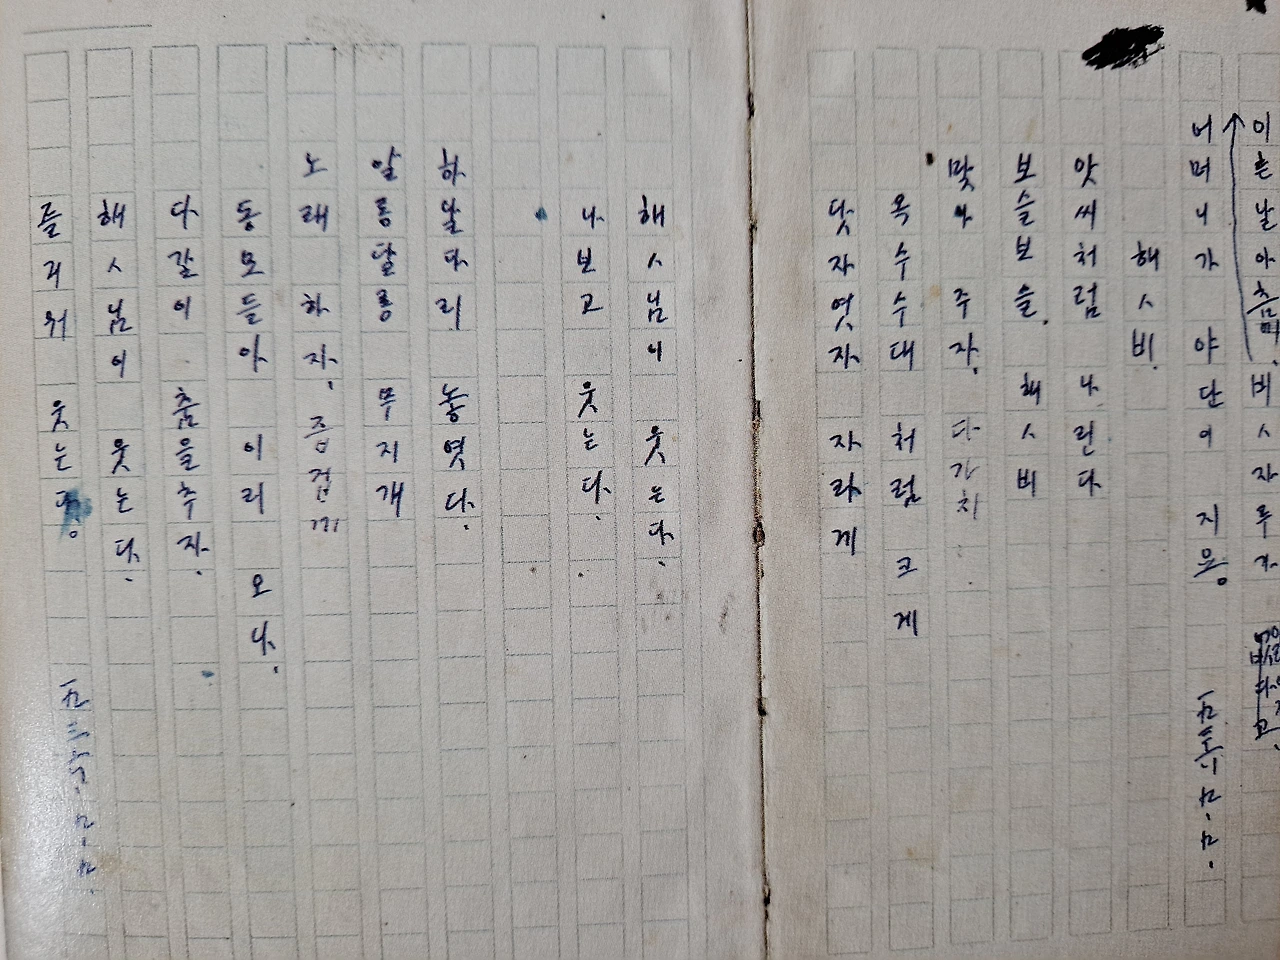 이튿날 아츰 비ㅅ자루가
어머니가 야단이 지요.
해ㅅ비.
앗씨처럼 나린다
보슬보슬. 해ㅅ비
맞아 주자. 다 가치
옥수수대 처럼 크게
닷자엿자 자라게
해ㅅ님이 웃는다.
나보고 웃는다.
하날다리 놓엿다.
알롱달롱 무지개
노래 하자. 즐겁게
동모들아 이리 오나.
다갈이 춤을추자.
해ㅅ님이 웃는다.
즐거워 웃는다.